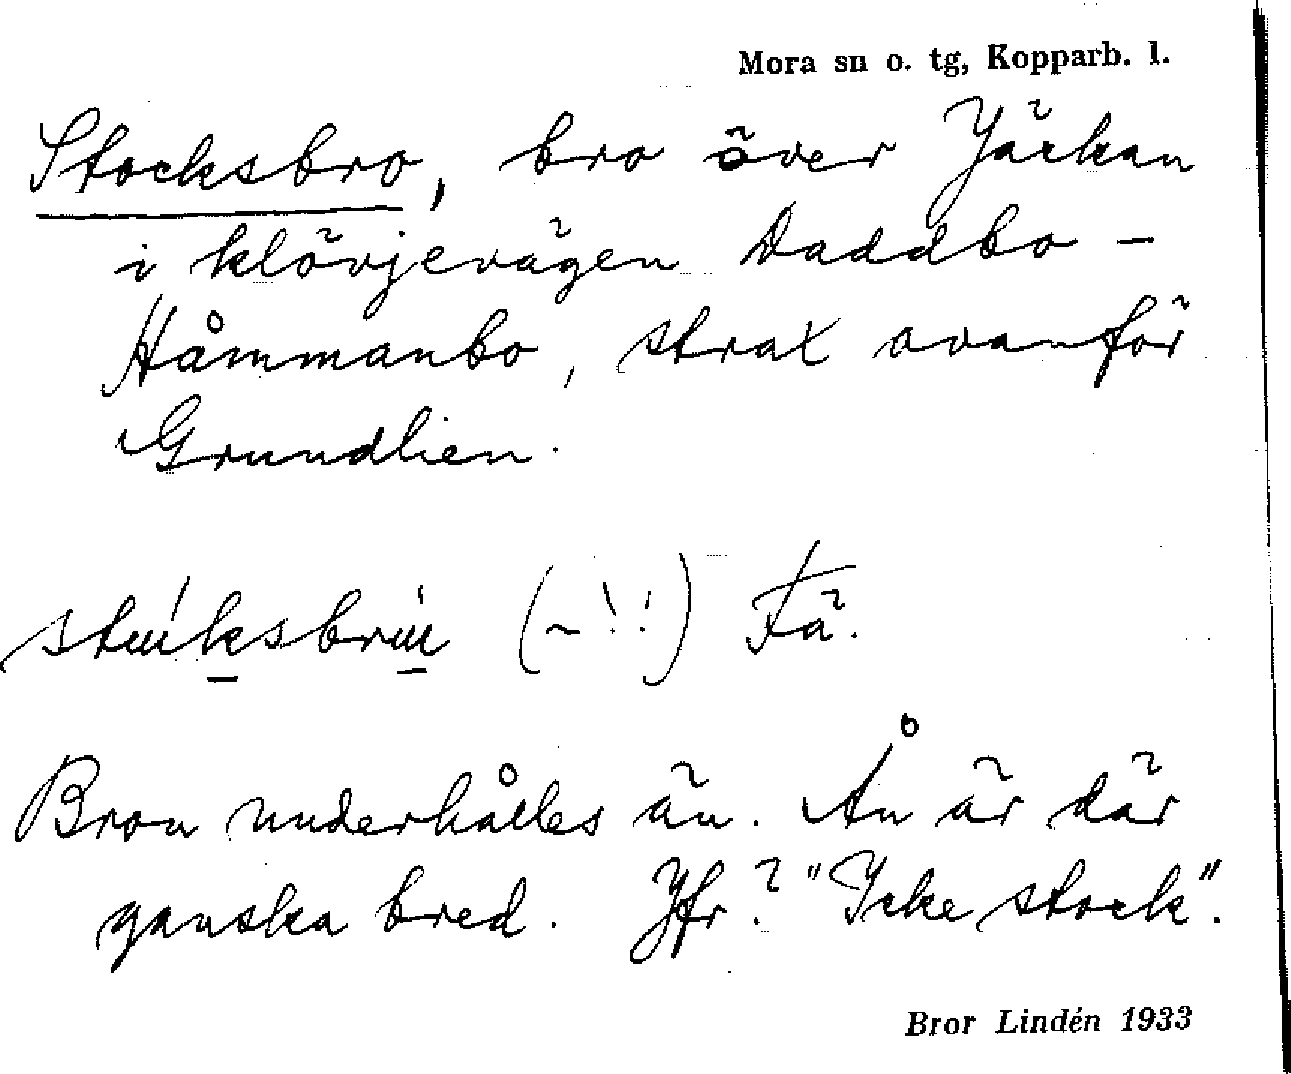 Mora sn o. tg, Kopparb. l.
Stocksbro, bro över Jäckan
i klövjevägen Daddbo -
Håmmanbo, strax ovanför
Grundlien.
Fä.
Bron underhålles än. Ån är där
ganska bred. Jfr? "Icke stock".
Bror Lindén 1933